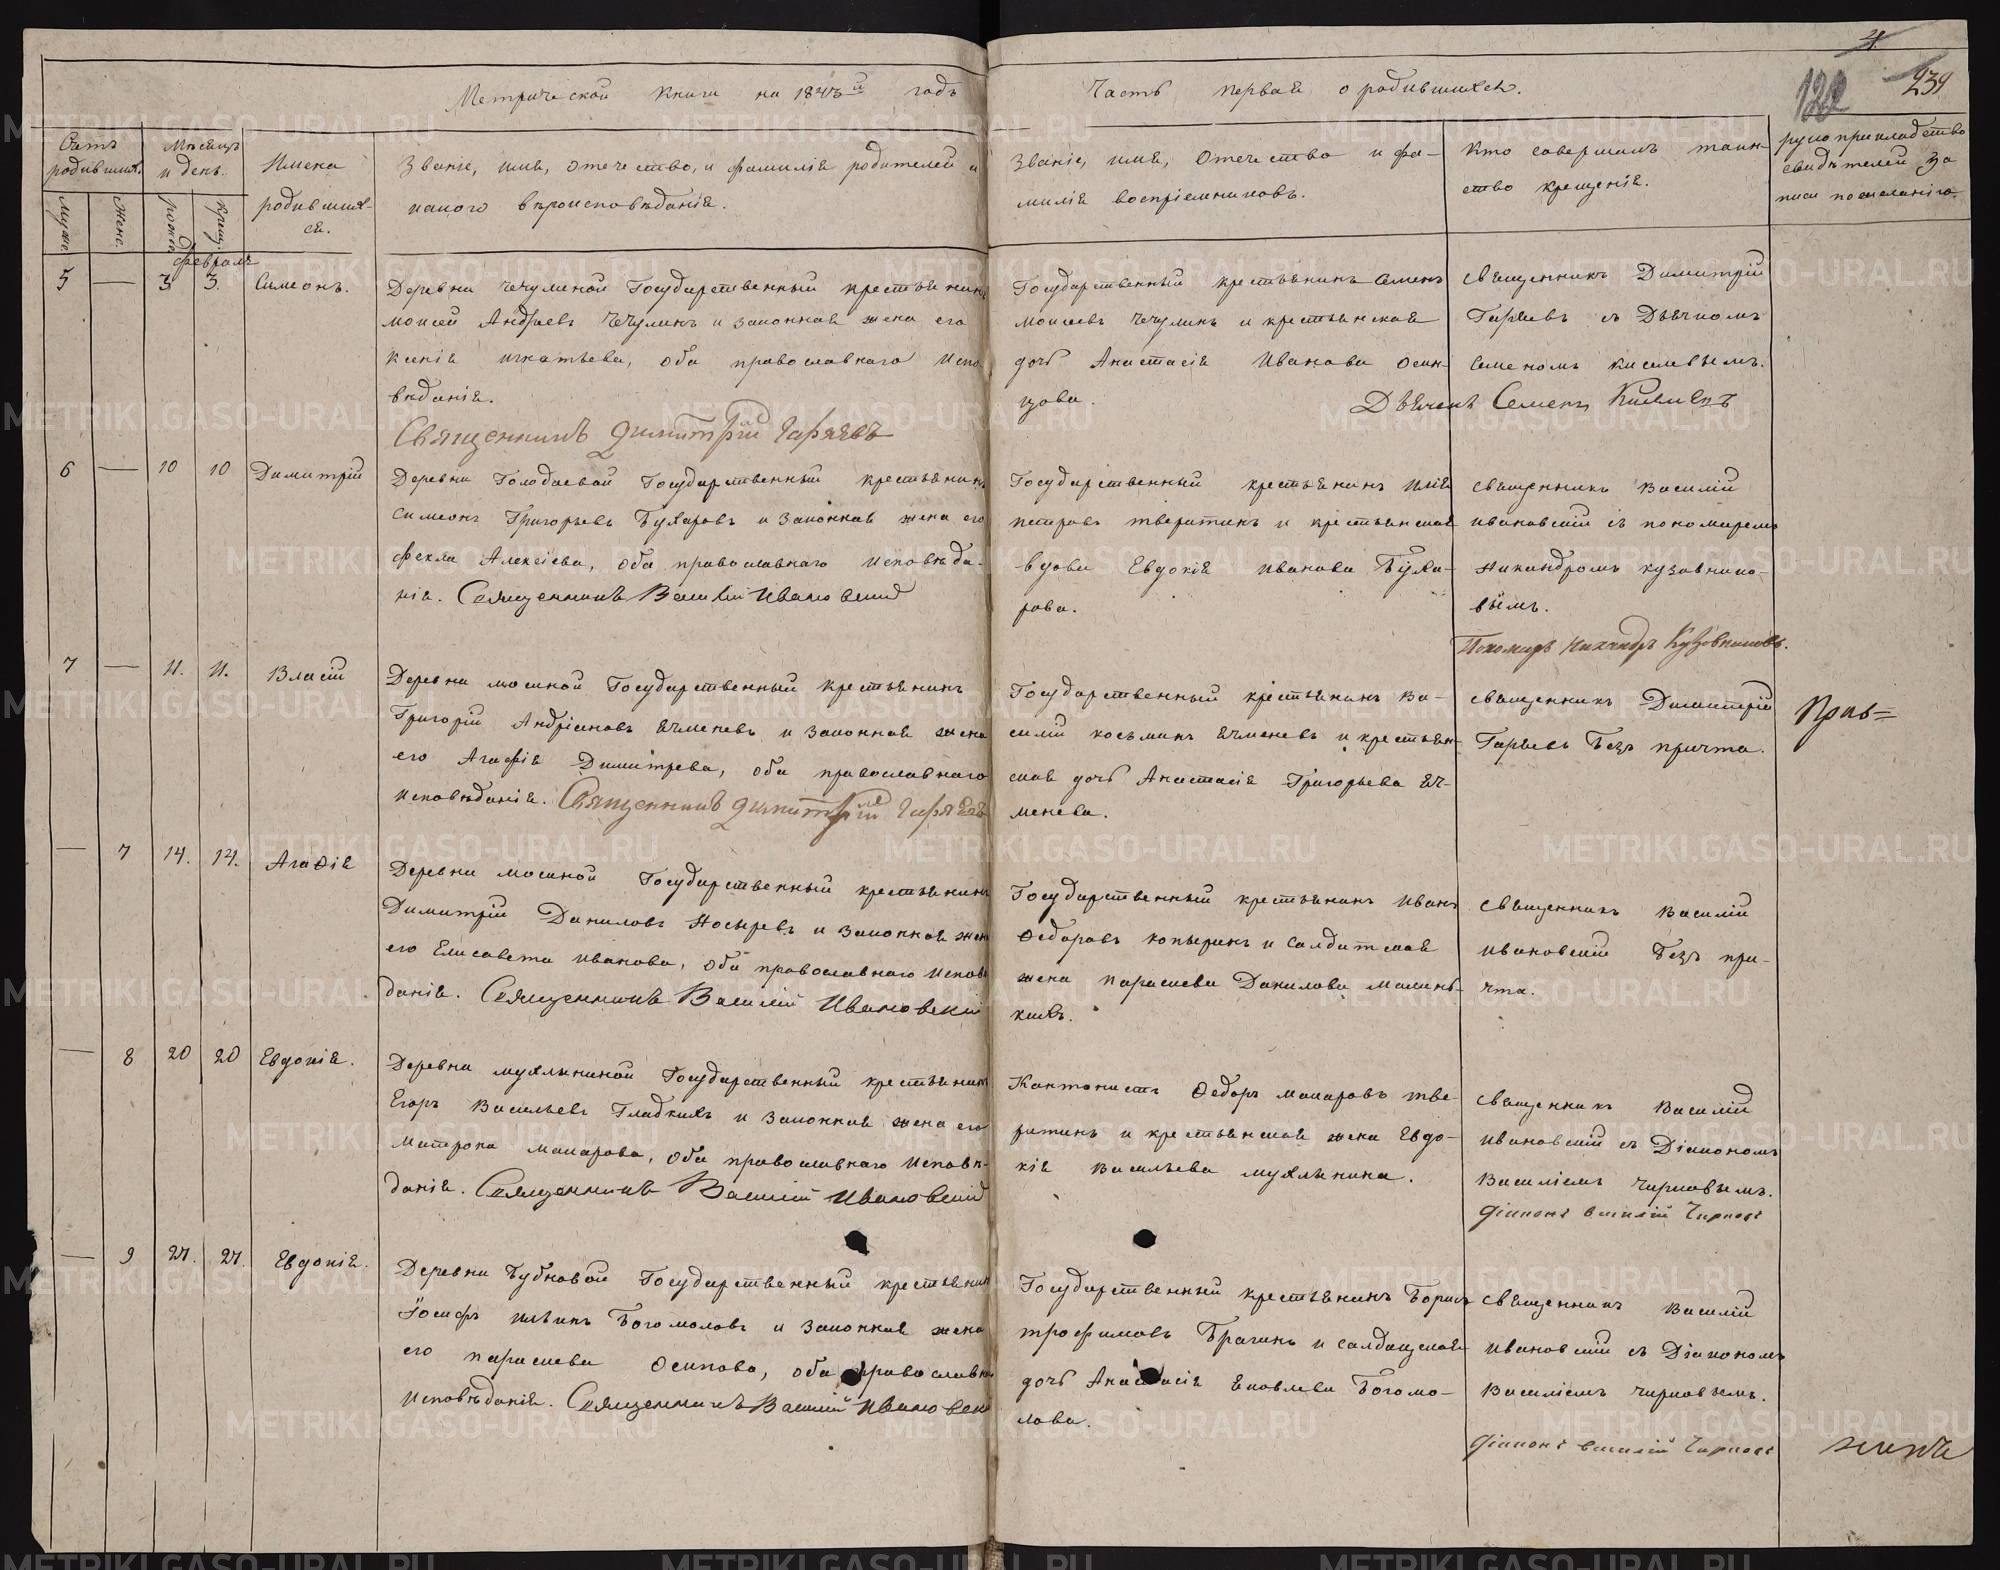 Метрической книги на 1843й годъ
Часть первая о родившихся.
4
122
239
Счетъ родившихся.
Мужс.
Женс.
Мѣсяцъ и день.
рожд.
крещ.
Имена родившихся.
Званіе, имя, отечество, и фамилія родителей и
какого вѣроисповѣданія.
Званіе, имя, отечество и фа-
милія воспріемниковъ.
Кто совершалъ таин-
ство крещенія.
рукоприкладство
свидѣтелей за
писи по желанію.
февраль
5 — 3 3. Симеонъ.
Деревни Чечулиной Государственный крестьянинъ
Моисей Андреевъ Чечулинъ и законная жена его
Ксенія Игнатьева, оба православнаго испо-
вѣданія.
Священникъ Димитрій Гаряевъ
Государственный крестьянинъ Семенъ
Моисеевъ Чечулинъ и крестьянская
дочь Анастасія Иванова Осин-
цова.
Священникъ Димитрій
Гаряевъ съ Дьячкомъ
Семеномъ Киселевымъ.
Дьячекъ Семенъ Киселевъ
6 — 10 10 Димитрій
Деревни Голодаевой Государственный крестьянинъ
Симеонъ Григорьевъ Бухаровъ и законная жена его
Фекла Алексіева, оба православнаго исповѣда-
нія. Священникъ Василій Ивановскій
Государственный крестьянинъ Илія
Петровъ Тверитинъ и крестьянская
вдова Евдокія Иванова Буха-
рова.
Священникъ Василій
Ивановскій съ пономаремъ
Никандромъ Кузовнико-
вымъ.
Пономарь Никандръ Кузовниковъ.
7 — 11. 11. Власій
Деревни Мосиной Государственный крестьянинъ
Григорій Андріановъ Ячменевъ и законная жена
его Агафія Димитрева, оба православнаго
исповѣданія. Священникъ Димитрій Гаряевъ
Государственный крестьянинъ Ва-
силій Косьминъ Ячменевъ и крестьян-
ская дочь Анастасія Григорьева Яч-
менева.
Священникъ Димитрій
Гаряевъ безъ причта.
— 7 14. 14. Агаѳія
Деревни Мосиной Государственный крестьянинъ
Димитрій Даниловъ Носыревъ и законная жена
его Елисавета Иванова, оба православнаго исповѣ
данія. Священникъ Василій Ивановскій
Государственный крестьянинъ Иванъ
Ѳедоровъ Копыринъ и солдатская
жена Параскева Данилова Малень-
кихъ.
Священникъ Василій
Ивановскій безъ при-
чта.
— 8 20 20 Евдокія.
Деревни Мухлыниной Государственный крестьянинъ
Егоръ Васильевъ Гладкихъ и законная жена его
Матрона Макарова, оба православнаго исповѣ-
данія. Священникъ Василій Ивановскій
Кантонистъ Ѳедоръ Макаровъ Тве-
ритинъ и крестьянская жена Евдо-
кія Васильева Мухлынина.
Священникъ Василій
Ивановскій съ Діакономъ
Василіемъ Чирковымъ.
Діаконъ Василій Чирковъ
— 9 27. 27. Евдокія.
Деревни Бубновой Государственный крестьянин
Іосифъ Ильинъ Богомоловъ и законная жена
его Параскева Осипова, оба православн
исповѣданія. Священникъ Василій Ивановскі
Государственный крестьянинъ Борисъ
Трофимовъ Брагинъ и солдацкая
дочь Анастасія Яковлева Богомо-
лова.
Священникъ Василій
Ивановскій съ Діакономъ
Василіемъ Чирковымъ.
Діаконъ Василій Чирковъ